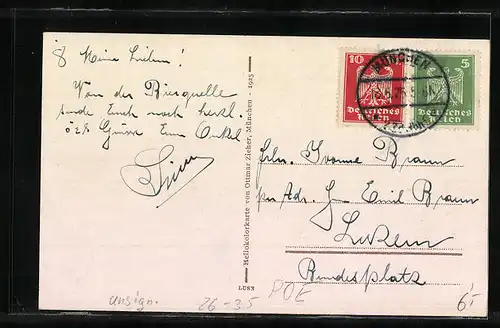 8 Meine Lieben!
Von der Bierquelle
sende Euch noch herzl.
Grüsse Eure Onkel
Heliokolorkarte von Ottmar Zieher, München - 1925
LUSE
10
Deutsches
Reich
5
Deutsches
Reich
MÜNCHEN
Frln. Yvonne Braun
per Adr. Hrn Emil Braun
Luzern
Bundesplatz
unsign.
26-3.5
6.-